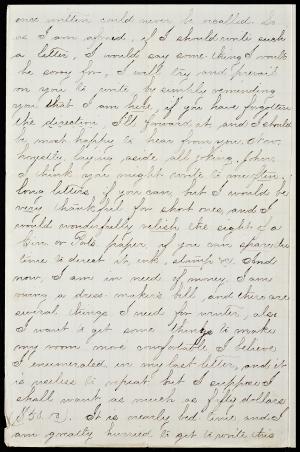 once written could never be recalled. So
as I am afraid, if I should write such
a letter, I would say some thing I would
be sorry for, I will try and prevail
on you to write by simply reminding
you that I am here, if you have forgotten
the direction I'll forward it, and I should
be most happy to hear from you. Now
honestly, laying aside all joking, John,
I think you might write to me
long letters if you can, but I would be
very thankful for short ones, and I
would wonderfully relish the sight of a
Cin. or Tole. paper, if you can spare the
time to direct it, ink, stamp &c. And
now, I am in need of money. I am
owing a dress-maker's bill, and there are
several things I need for winter, also
I want to get some things to make
my room more comfortable, I believe
I enumerated in my last letter, and it
is useless to repeat but I suppose I
shall want as much as fifty dollars
$50. It is nearly bed time and I
am greatly hurried to get to write this